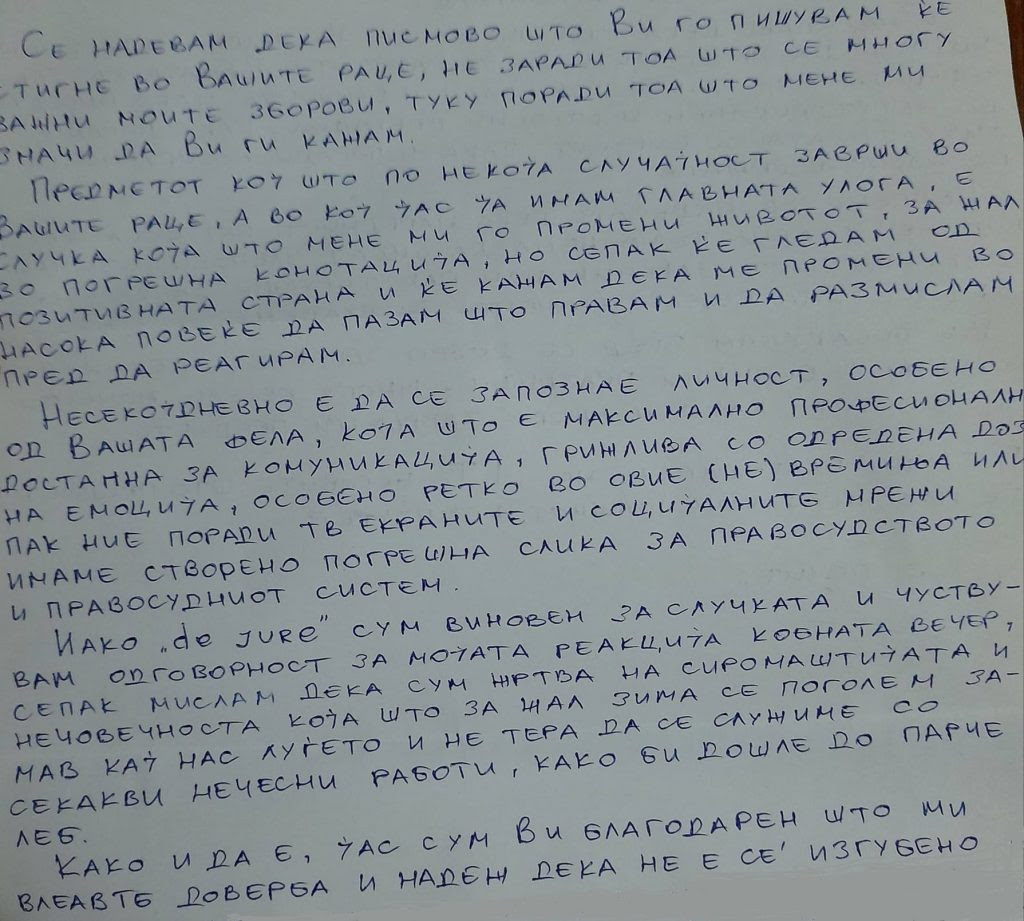 Се надевам дека писмово што Ви го пишувам ќе
стигне во Вашите раце, не заради тоа што се многу
важни моите зборови, туку поради тоа што мене ми
значи да Ви ги кажам.
Предметот кој што по некоја случајност заврши во
Вашите раце, а во кој јас ја имам главната улога, е
случка која што мене ми го промени животот, за жал
во погрешна конотација, но сепак ќе гледам од
позитивната страна и ќе кажам дека ме промени во
насока повеќе да пазам што правам и да размислам
пред да реагирам.
Несекојдневно е да се запознае личност, особено
од Вашата фела, која што е максимално професионалн
достапна за комуникација, грижлива со одредена доз
на емоција, особено ретко во овие (не) времиња или
пак ние поради ТВ екраните и социјалните мрежи
имаме створено погрешна слика за правосудството
и правосудниот систем.
Иако „de jure" сум виновен за случката и чуству-
вам одговорност за мојата реакција кобната вечер,
сепак мислам дека сум жртва на сиромаштијата и
нечовечноста која што за жал зима се поголем за-
мав кај нас луѓето и не тера да се служиме со
секакви нечесни работи, како би дошле до парче
леб.
Како и да е, јас сум Ви благодарен што ми
влеавте доверба и надеж дека не е се' изгубено